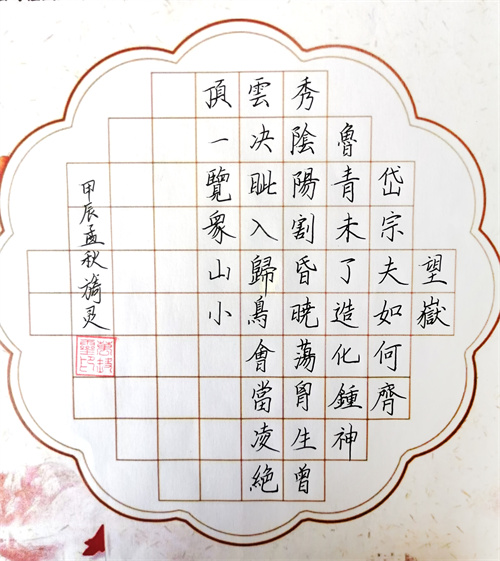 望嶽
岱宗夫如何齊
魯青未了造化鍾神
秀陰陽割昏曉蕩胷生曾
雲决眦入歸鳥會當凌絕
頂一覽衆山小
甲辰孟秋